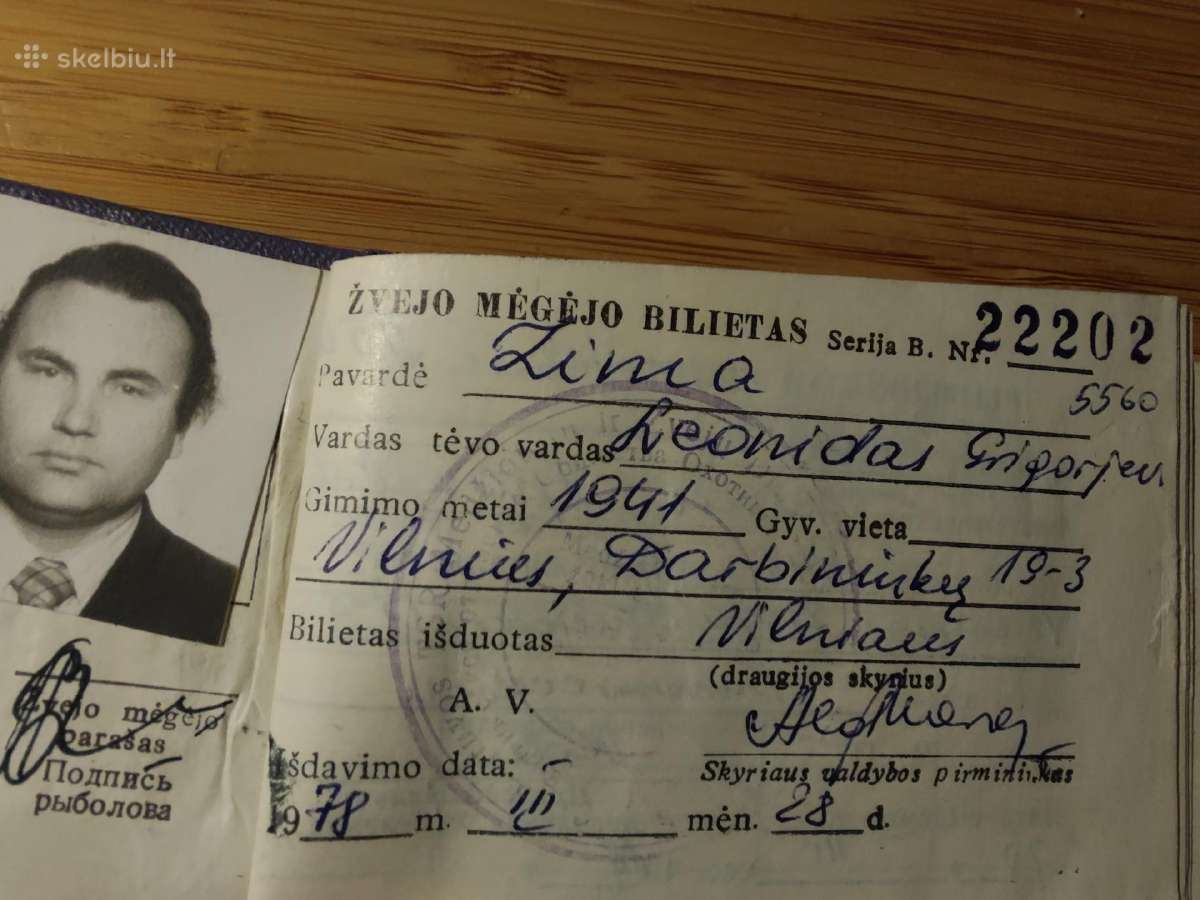 skelbiu.lt
ŽVEJO MĖGĖJO BILIETAS Serija B. Nr. 22202
Pavardė Zima 5560
Vardas tėvo vardas Leonidas Grigorjev.
Gimimo metai 1941 Gyv. vieta
Vilnius, Darbininkų 19-3
Bilietas išduotas Vilniaus
(draugijos skyrius)
A. V.
Skyriaus valdybos pirmininkas
Išdavimo data:
1978 m. III mėn. 28 d.
Žvejo mėgėjo
parašas
Подпись
рыболова